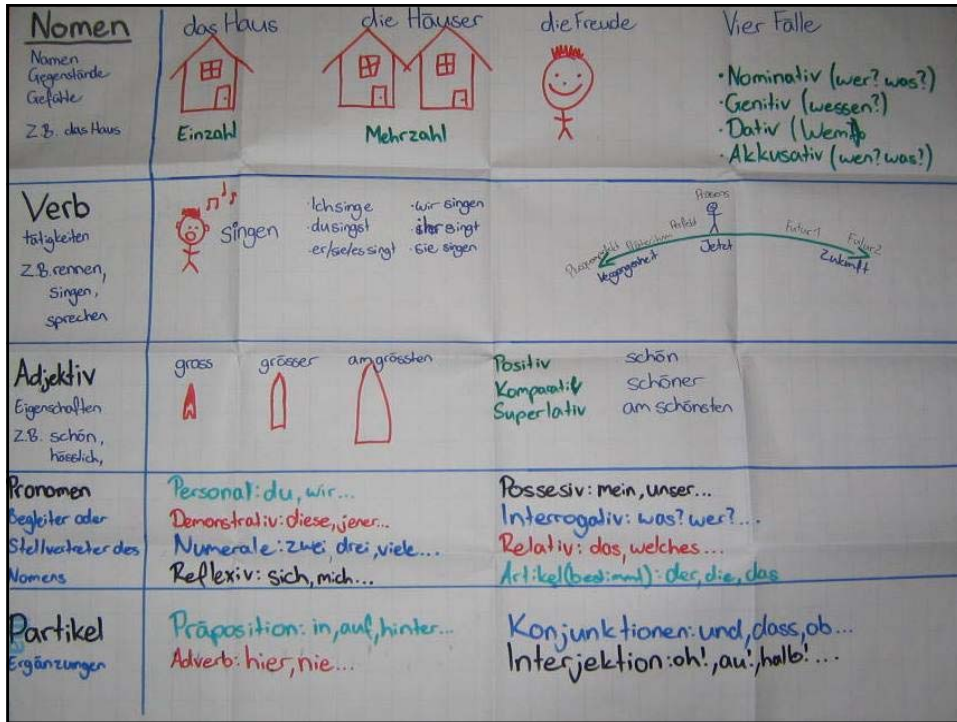 Nomen
Namen
Gegenstände
Gefühle
Z.B. das Haus
das Haus
Einzahl
die Häuser
Mehrzahl
die Freude
Vier Fälle
·Nominativ (wer? was?)
·Genitiv (wessen?)
·Dativ (Wem?)
·Akkusativ (wen? was?)
Verb
tätigkeiten
Z.B. rennen,
singen,
sprechen
singen
·Ich singe
·du singst
·er/sie/es singt
·wir singen
·ihr singt
·sie singen
Plusquamperfekt Präteritum Perfekt Präsens Futur1 Futur2
Vergangenheit Jetzt Zukunft
Adjektiv
Eigenschaften
Z.B. schön,
hässlich,
gross grösser am grössten
Positiv schön
Komparativ schöner
Superlativ am schönsten
Pronomen
Begleiter oder
Stellvertreter des
Nomens
Personal: du, wir...
Demonstrativ: diese, jener...
Numerale: zwei, drei, viele...
Reflexiv: sich, mich...
Possesiv: mein, unser...
Interrogativ: was? wer?...
Relativ: das, welches...
Artikel (bestimmt): der, die, das
Partikel
Ergänzungen
Präposition: in, auf, hinter...
Adverb: hier, nie...
Konjunktionen: und, dass, ob...
Interjektion: oh!, au!, hallo!...